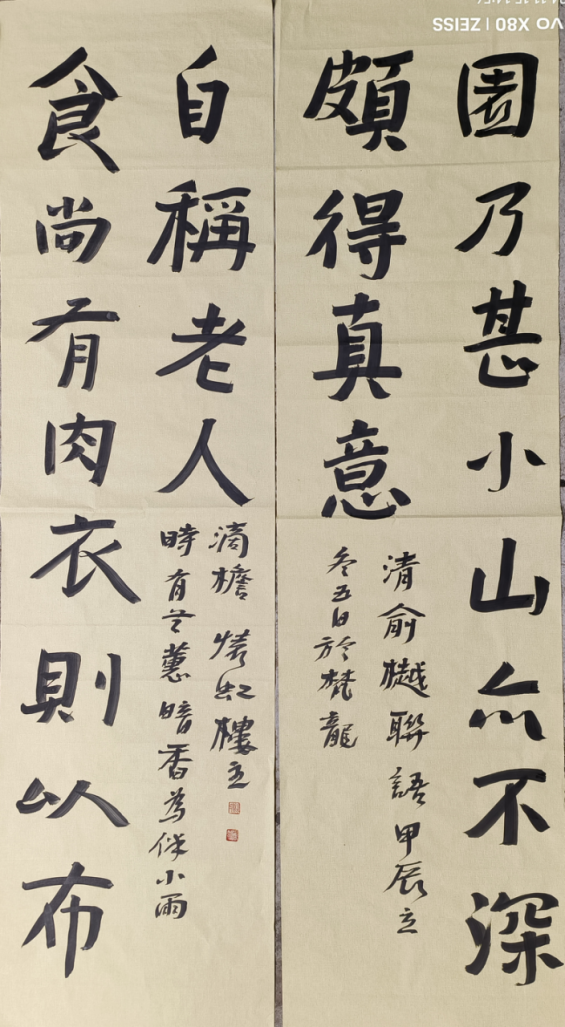 VO X80 | ZEISS
園乃甚小山亦不深
頗得真意
清俞樾聯語甲辰立
冬五日於梵龍
食尚有肉衣則以布
自稱老人
時有蕙暗香為伴小雨
滴檐 虹樓主